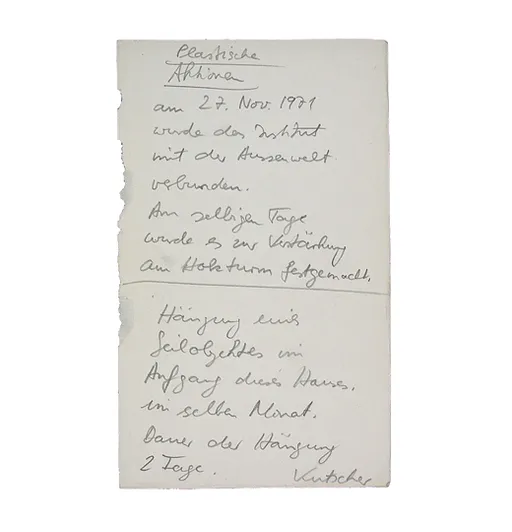 Plastische
Aktionen
am 27. Nov. 1971
wurde das Institut
mit der Aussenwelt
verbunden.
Am selbigen Tage
wurde es zur Verstärkung
am Holzturm festgemacht.
Hängung eines
Seilobjektes im
Aufgang dieses Hauses.
im selben Monat.
Dauer der Hängung
2 Tage.
Kutscher